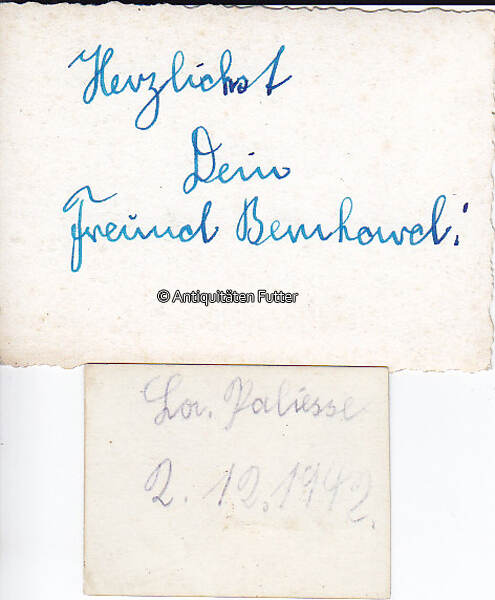 Herzlichst
Dein
Freund Bernhard!
© Antiquitäten Futter
La. Paliesse
2.12.1942.